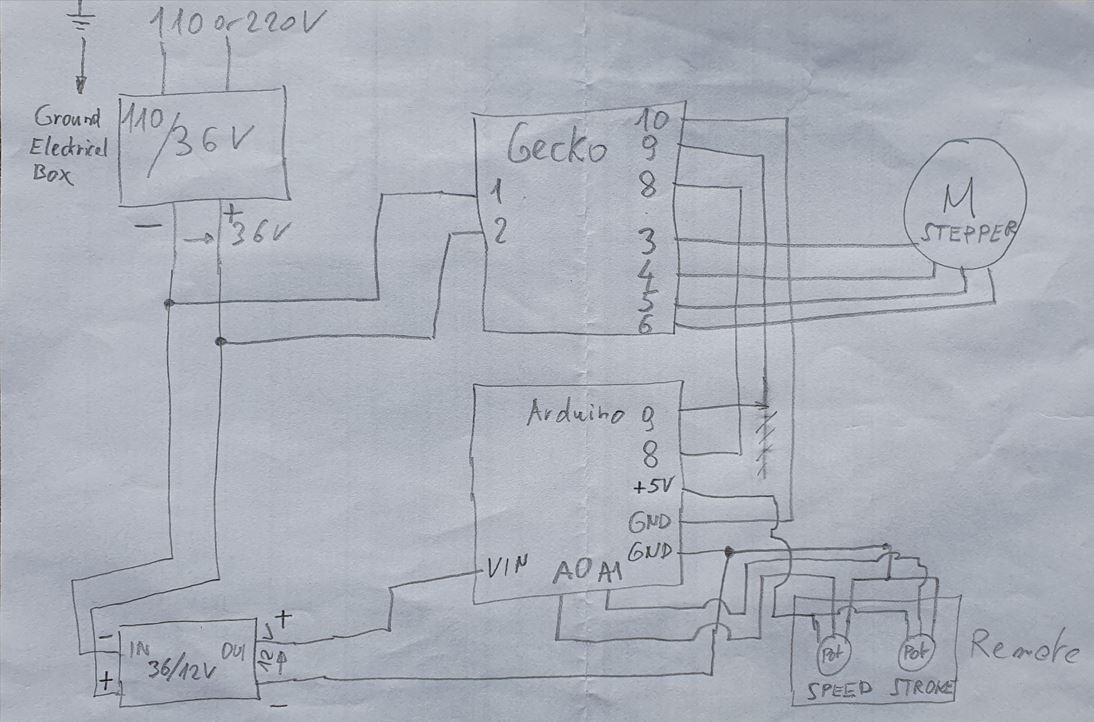 110 or 220V
Ground
Electrical
Box
110
/36V
-
+
36V
Gecko
1
2
10
9
8
3
4
5
6
M
STEPPER
Arduino
9
8
+5V
GND
GND
VIN
A0 A1
-
IN
+
36/12V
OUT
12V
+
-
Pot
Pot
SPEED STROKE
Remote